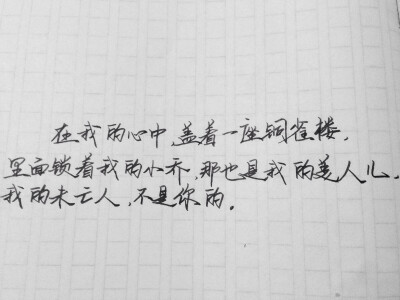 在我的心中,盖着一座铜雀楼,
里面锁着我的小乔,那也是我的美人儿,
我的未亡人,不是你的。